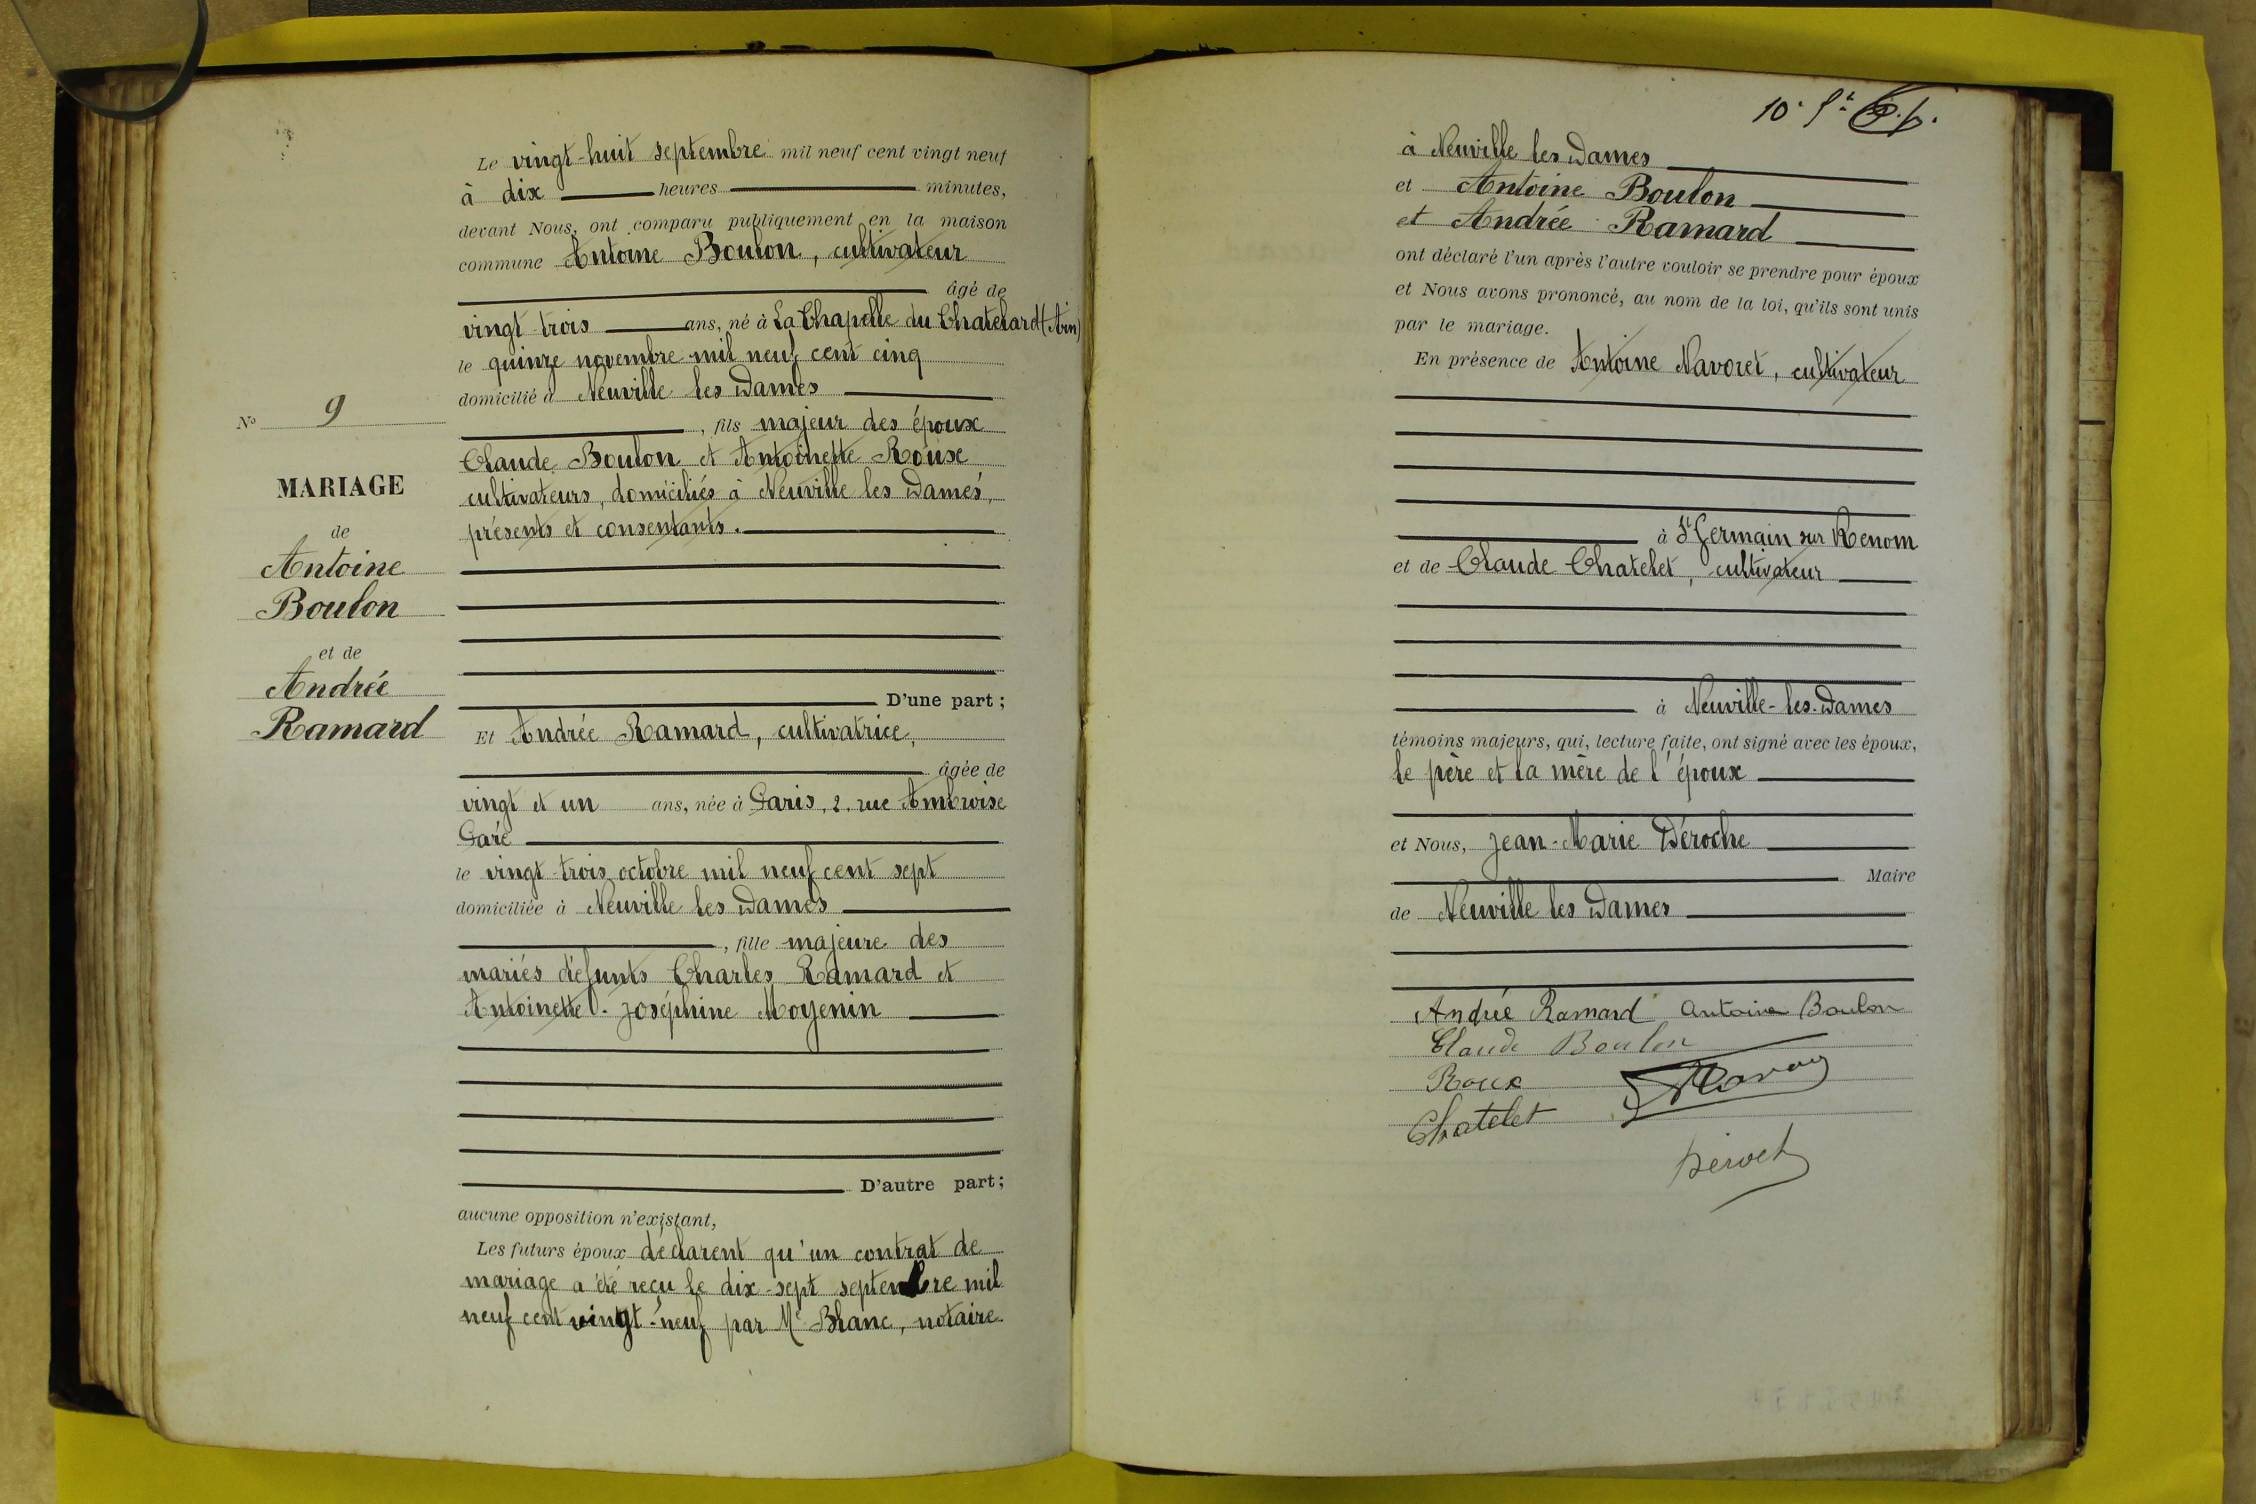 Le vingt-huit septembre mil neuf cent vingt neuf
à dix heures minutes,
devant Nous, ont comparu publiquement en la maison
commune Antoine Boulon, cultivateur
âgé de
vingt trois ans, né à La Chapelle du Chatelard (Ain)
le quinze novembre mil neuf cent cinq
domicilié à Neuville les Dames
, fils majeur des époux
Claude Boulon et Antoinette Roux
cultivateurs, domiciliés à Neuville les Dames,
présents et consentants.
D'une part ;
Et Andrée Ramard, cultivatrice,
âgée de
vingt et un ans, née à Paris, 2, rue Ambroise
Paré
le vingt-trois octobre mil neuf cent sept
domiciliée à Neuville les Dames
, fille majeure des
mariés défunts Charles Ramard et
Antoinette-Joséphine Moyenin
D'autre part ;
aucune opposition n'existant,
Les futurs époux déclarent qu'un contrat de
mariage a été reçu le dix-sept septembre mil
neuf cent vingt-neuf par Me Blanc, notaire
No 9
MARIAGE
de
Antoine
Boulon
et de
Andrée
Ramard
10.
à Neuville les Dames
et Antoine Boulon
et Andrée Ramard
ont déclaré l'un après l'autre vouloir se prendre pour époux
et Nous avons prononcé, au nom de la loi, qu'ils sont unis
par le mariage.
En présence de Antoine Navoret, cultivateur
à St Germain sur Renom
et de Claude Chatelet, cultivateur
à Neuville-les-Dames
témoins majeurs, qui, lecture faite, ont signé avec les époux,
le père et la mère de l'époux
et Nous, Jean-Marie Déroche
Maire
de Neuville les Dames
Andrée Ramard Antoine Boulon
Claude Boulon
Roux
Chatelet